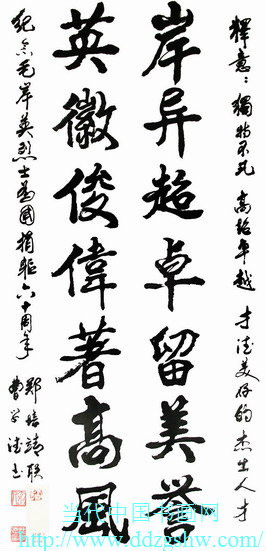 釋意：獨特不凡 高超卓越 才德美好的杰出人才
岸异超卓留美誉
英徽俊偉著高風
纪念毛岸英烈士為國捐軀六十周年
鄭培靖联
当代中国书画网
http://www.ddzgshw.com